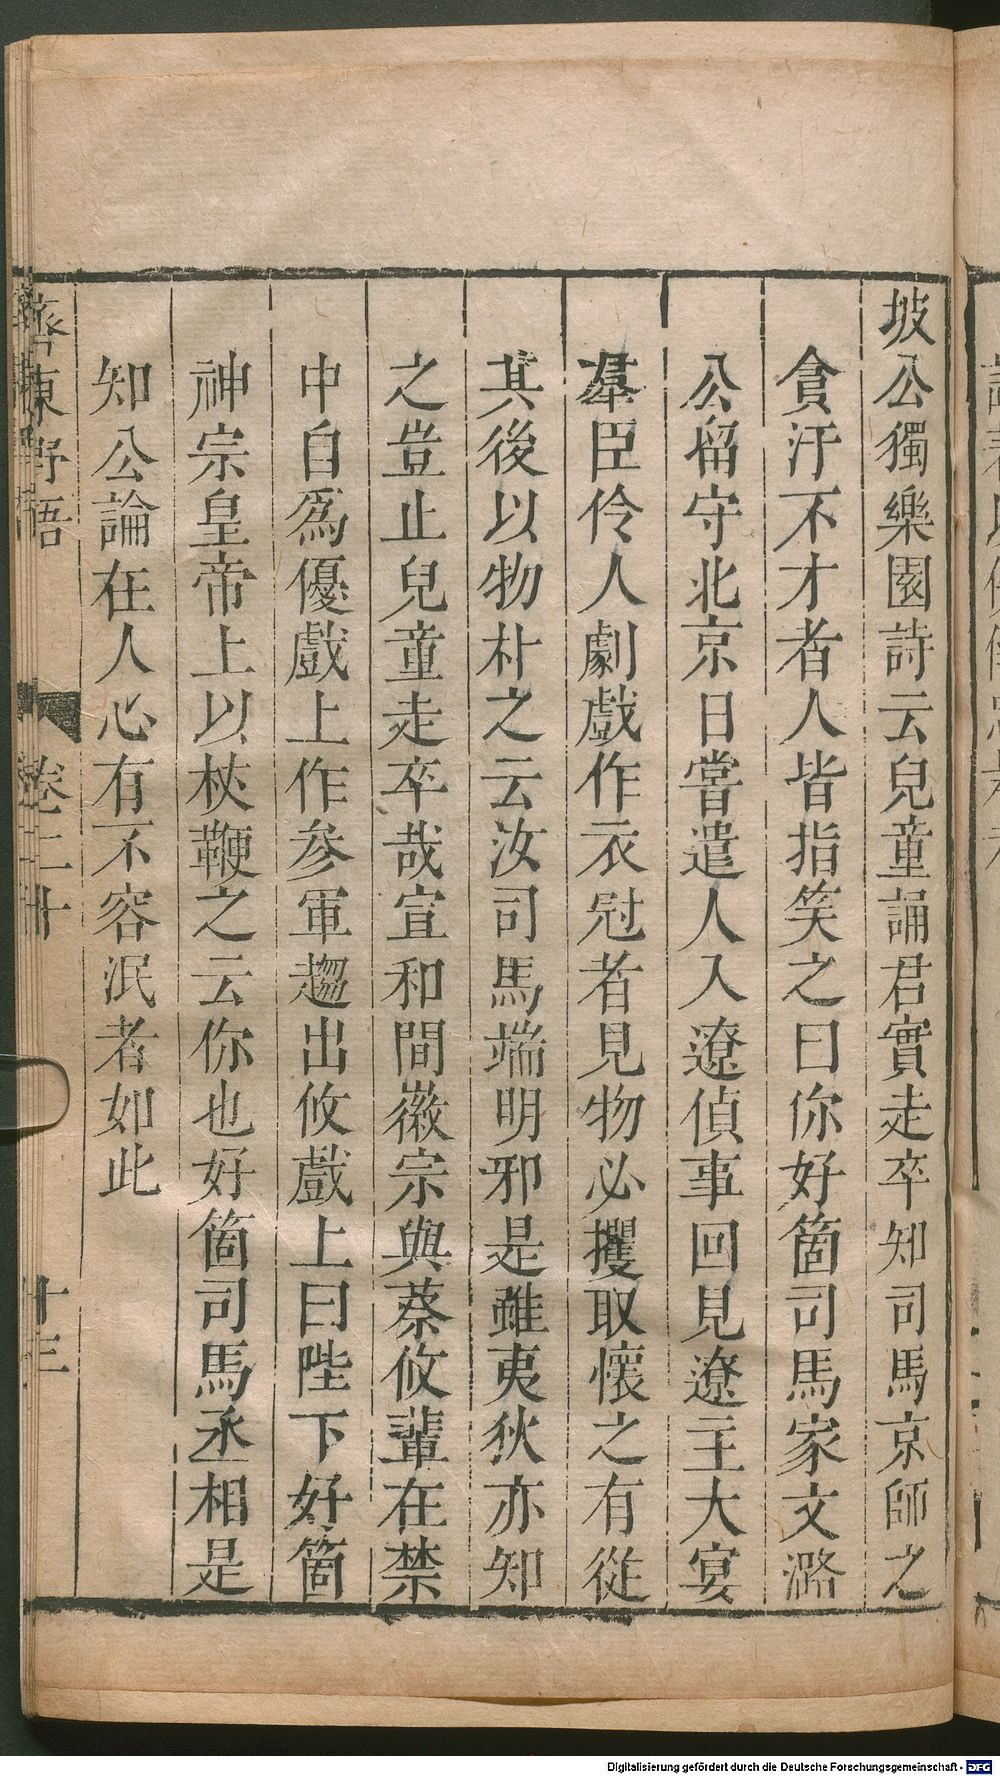 坡公獨樂園詩云兒童誦君實走卒知司馬京師之
貪汙不才者人皆指笑之曰你好箇司馬家文潞
公留守北京日嘗遣人入遼偵事回見遼主大宴
羣臣伶人劇戲作衣冠者見物必攫取懷之有從
其後以物朴之云汝司馬端明邪是雖夷狄亦知
之豈止兒童走卒哉宣和間徽宗與蔡攸輩在禁
中自爲優戲上作參軍趨出攸戲上曰陛下好箇
神宗皇帝上以杖鞭之云你也好箇司馬丞相是
知公論在人心有不容泯者如此
齊東野語
卷二十
十三
Digitalisierung gefördert durch die Deutsche Forschungsgemeinschaft - DFG